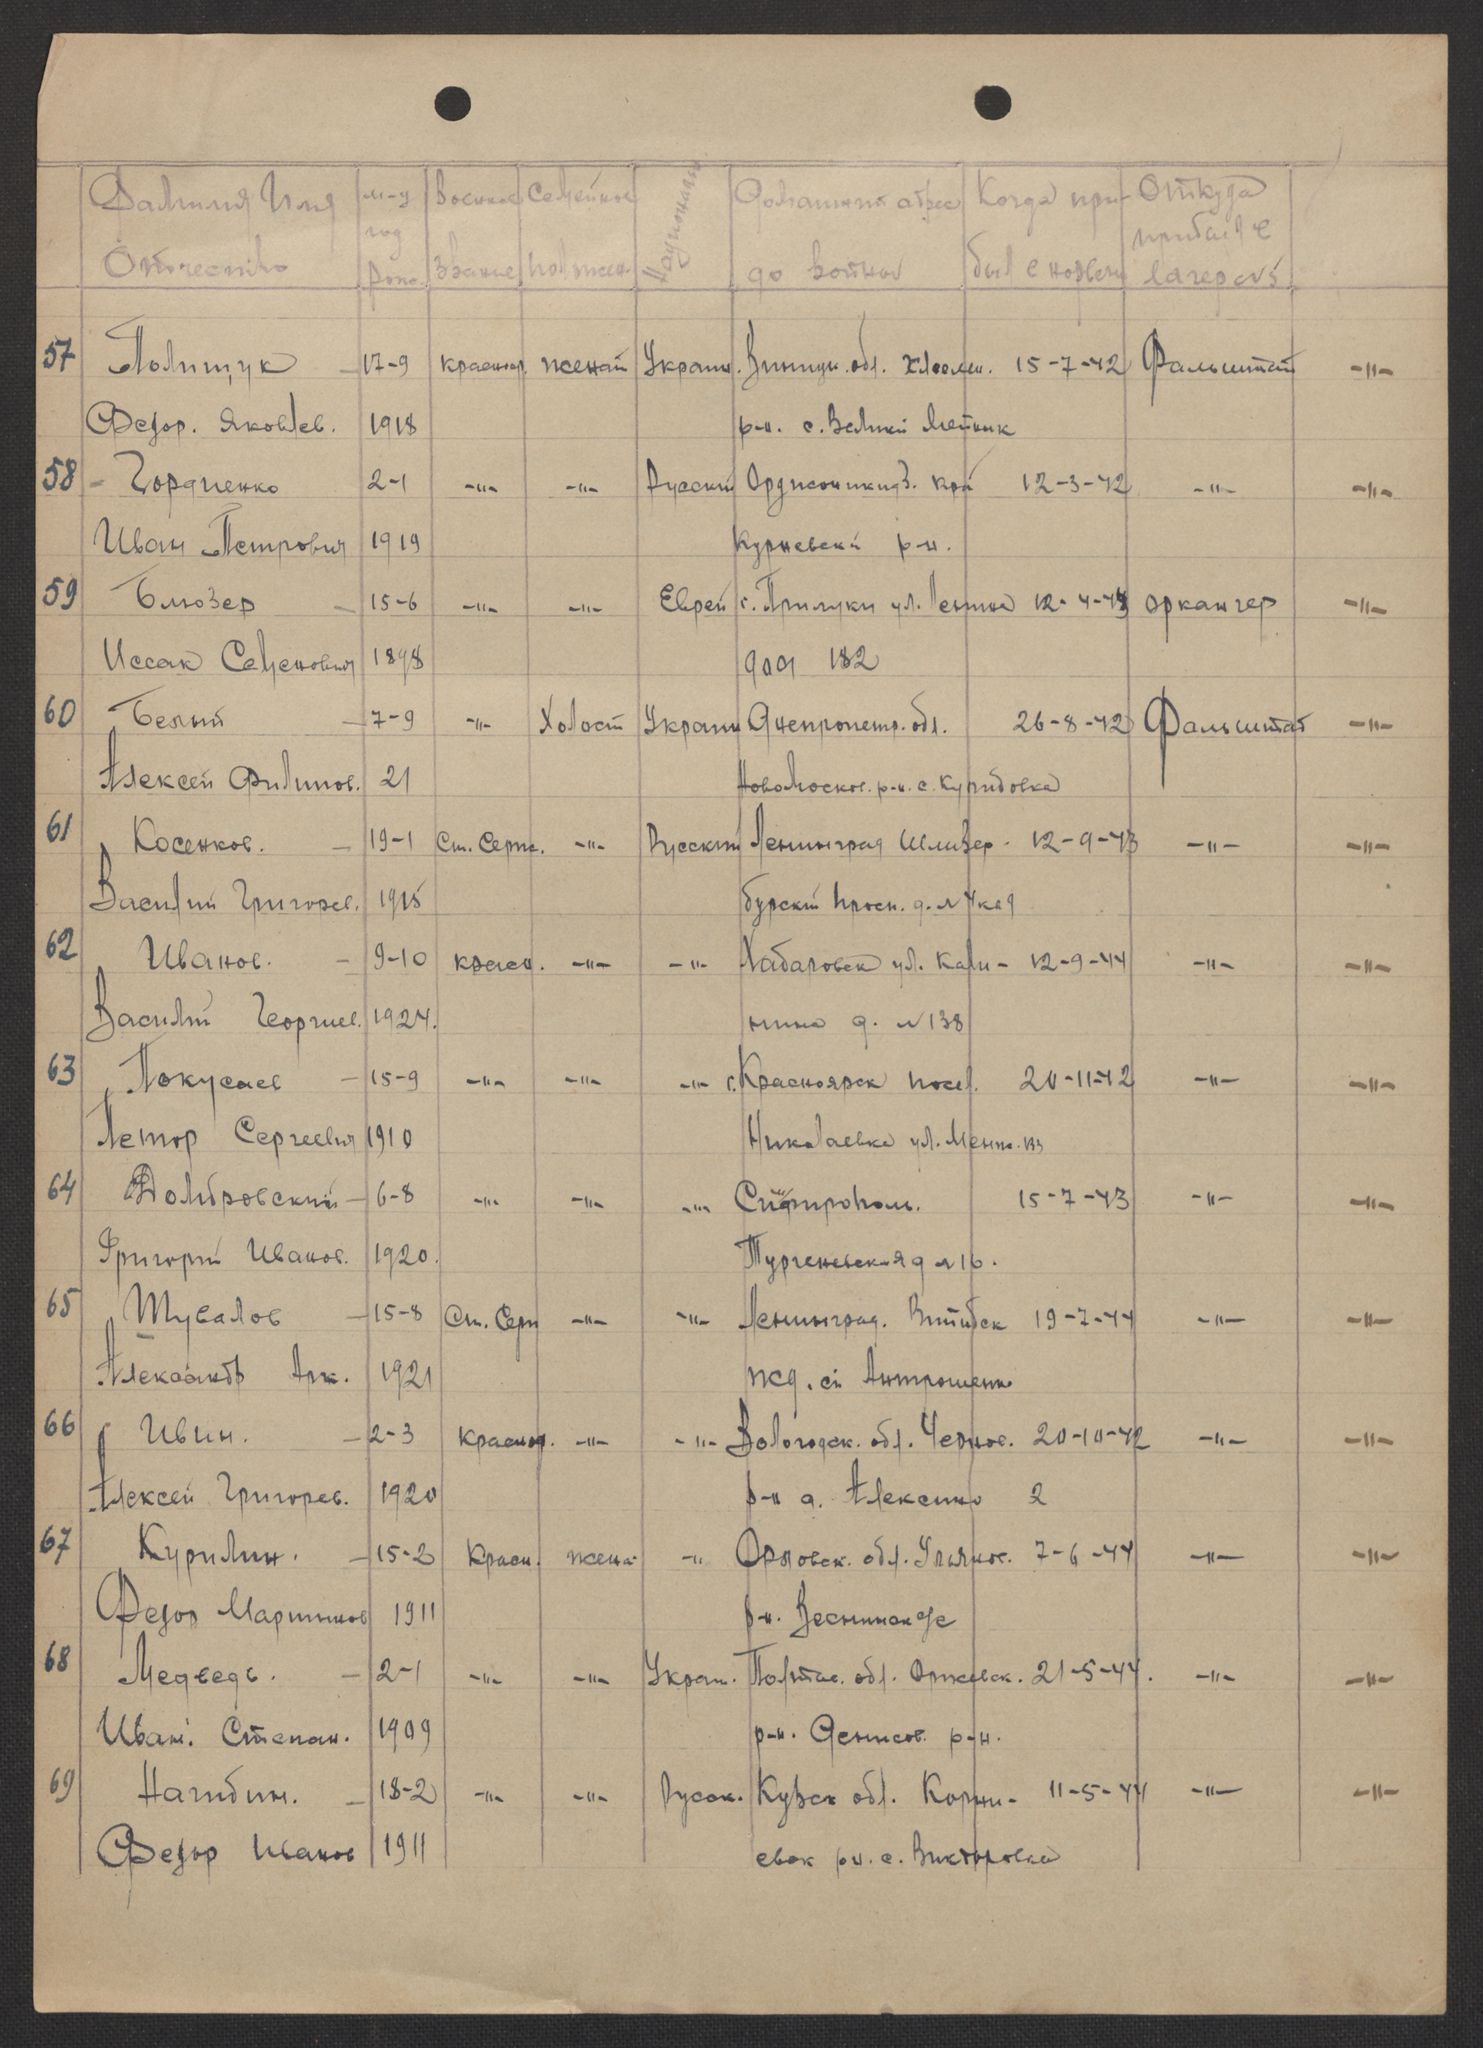 Фамилия Имя Отчество | м-ц год рожд. | Военное звание | Семейное полжен. | Национальн | Домашний адрес до войны | Когда прибыл в норвег | Откуда прибыл с лагеря №
57 Полищук - | 17-9 | красноар. | женат | Украин. | Виницк. обл. | 15-7-42 | Фальштат | -"-
Федор. Яковлев. | 1918 | р-н. с. Велики
58 - Гордиенко | 2-1 | -"- | -"- | Русский | Орджоникидз. край | 12-3-42 | -"- | -"-
Иван Петрович | 1919 | Курсавский р-н.
59 Блюзер - | 15-6 | -"- | -"- | Еврей | г. Прилуки ул. Ленина | 12-4-43 | Оркангер | -"-
Иссак Семенович | 1898 | дом 182
60 Белый - | 7-9 | -"- | Холост | Украин | Днепропетр. обл. | 26-8-42 | Фальштат | -"-
Алексей Филипов. | 21 | Новомосков. р-н. с.
61 Косенков. - | 19-1 | Ст. Серж. | -"- | Русский | Ленинград Шлизер- | 12-9-43 | -"- | -"-
Василий Григорев. | 1915 | бурский просп. д. №
62 Иванов. - | 9-10 | красн. | -"- | -"- | Хабаровск ул. Кали- | 12-9-44 | -"- | -"-
Василий Георгиев. | 1924. | нина д. №138
63 Покусаев - | 15-9 | -"- | -"- | -"- | г. Красноярск посел. | 20-11-42 | -"- | -"-
Петор Сергеевич | 1910 | Николаевка ул.
64 Домбровский - | 6-8 | -"- | -"- | -"- | Симфирополь. | 15-7-43 | -"- | -"-
Григорий Иванов. | 1920. | Тургеневская д №16.
65 Шувалов - | 15-8 | Ст. Серж | -"- | -"- | Ленинград. Витибск | 19-7-44 | -"- | -"-
Александр Арк. | 1921 | жд. ст Антрошени
66 Ивин. - | 2-3 | красноар. | -"- | -"- | Вологодск. обл. Чернос. | 20-10-42 | -"- | -"-
Алексей Григорев. | 1920 | р-н д. Алексино 2
67 Курилин. - | 15-2 | Красн. | жена- | -"- | Орловск. обл. Ульянов. | 7-6-44 | -"- | -"-
Федор Мартинов | 1911 | р-н.
68 Медведь. - | 2-1 | -"- | -"- | Украи. | Полтав. обл. Оржевск. | 21-5-44. | -"- | -"-
Иван. Степан. | 1909 | р-н. Денисов. р-н.
69 Нагибин. - | 18-2 | -"- | -"- | Русск. | Курск обл. Корни- | 11-5-44 | -"- | -"-
Федор Иванов | 1911 | евск р-н. с. Викторовка